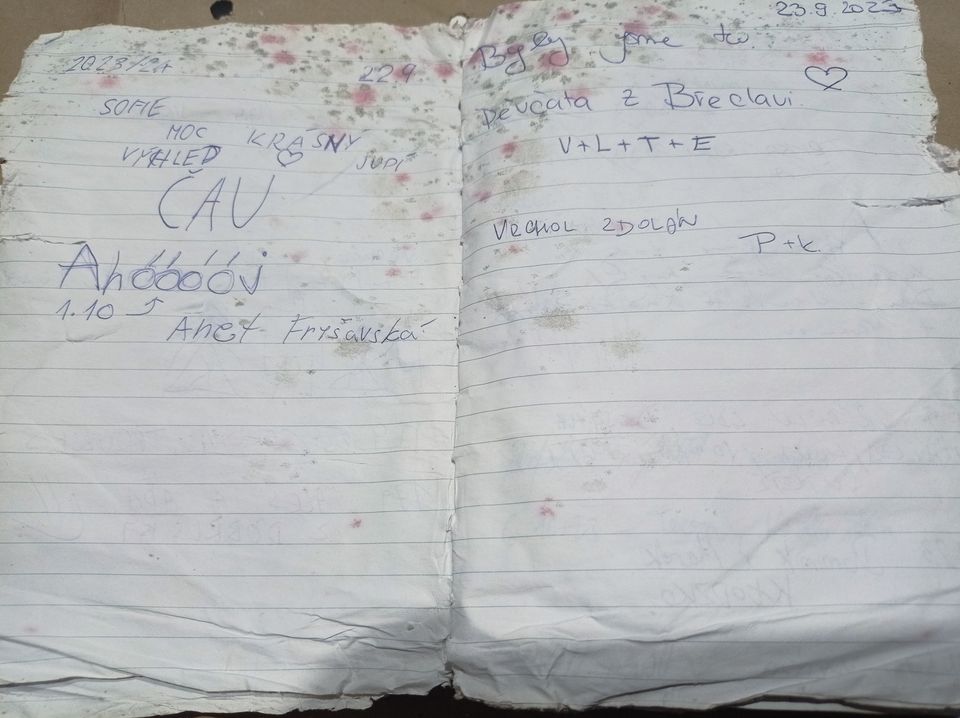 22.9
SOFIE
MOC KRÁSNÝ
VÝHLED JUPÍ
ČAU
Ahóóóój
1.10
Anet Fryšavská
23.9.2023
Byly jsme tu.
Děvčata z Břeclavi
V+L+T+E
VRCHOL ZDOLÁN
P+K.